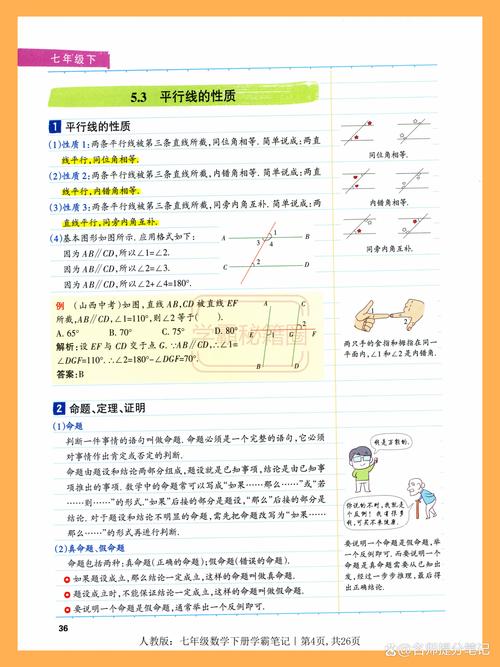 七年级下
5.3 平行线的性质
1 平行线的性质
(1)性质1:两条平行线被第三条直线所截,同位角相等. 简单说成:两直
线平行,同位角相等.
(2)性质2:两条平行线被第三条直线所截,内错角相等. 简单说成:两直
线平行,内错角相等.
(3)性质3:两条平行线被第三条直线所截,同旁内角互补. 简单说成:两
直线平行,同旁内角互补.
(4)基本图形如图所示. 应用格式如下:
因为AB∥CD,所以∠1=∠2.
因为AB∥CD,所以∠2=∠3.
因为AB∥CD,所以∠2+∠4=180°.
A
B
C
D
1
3
4
2
同位角相等.
内错角相等.
同旁内角互补.
例 (山西中考)如图,直线AB,CD被直线EF
所截,AB∥CD,∠1=110°,则∠2等于( ).
A. 65° B. 70° C. 75° D. 80°
解析:设EF与CD交于点G.∵AB∥CD,∴∠1=
∠DGF=110°.∴∠2=180°-∠DGF=70°.
答案:B
A
C
E
1
G
2
F
B
D
学霸秘籍圈
1
2
两只手的食指和拇指在同一
平面内,∠1和∠2是内错角.
2 命题、定理、证明
(1)命题
判断一件事情的语句叫做命题. 命题必须是一个完整的语句,它必须
对事情作出肯定或否定的判断.
命题由题设和结论两部分组成,题设就是已知事项,结论是由已知事
项推出的事项. 数学中的命题常可以写成“如果……那么……”或“若
……则……”的形式.“如果”后接的部分是题设,“那么”后接的部分是
结论. 对于题设和结论不明显的命题,需先把命题改写为“如果……
那么……”的形式再进行判断.
(2)真命题、假命题
命题包括两种:真命题(正确的命题);假命题(错误的命题).
如果题设成立,那么结论一定成立,这样的命题叫做真命题.
题设成立时,不能保证结论一定成立,这样的命题叫做假命题.
要说明一个命题是假命题,通常举出一个反例即可.
我是万能的.
你说的不对,我就是
个反例!我有得多
钱,可买不来健康.
要说明一个命题是假命题,举
一个反例即可. 而要说明一个
命题是真命题需要从已知出
发,经过一步步推理,最后得
出正确结论.
36
人教版:七年级数学下册学霸笔记 | 第4页,共26页
名师提分笔记